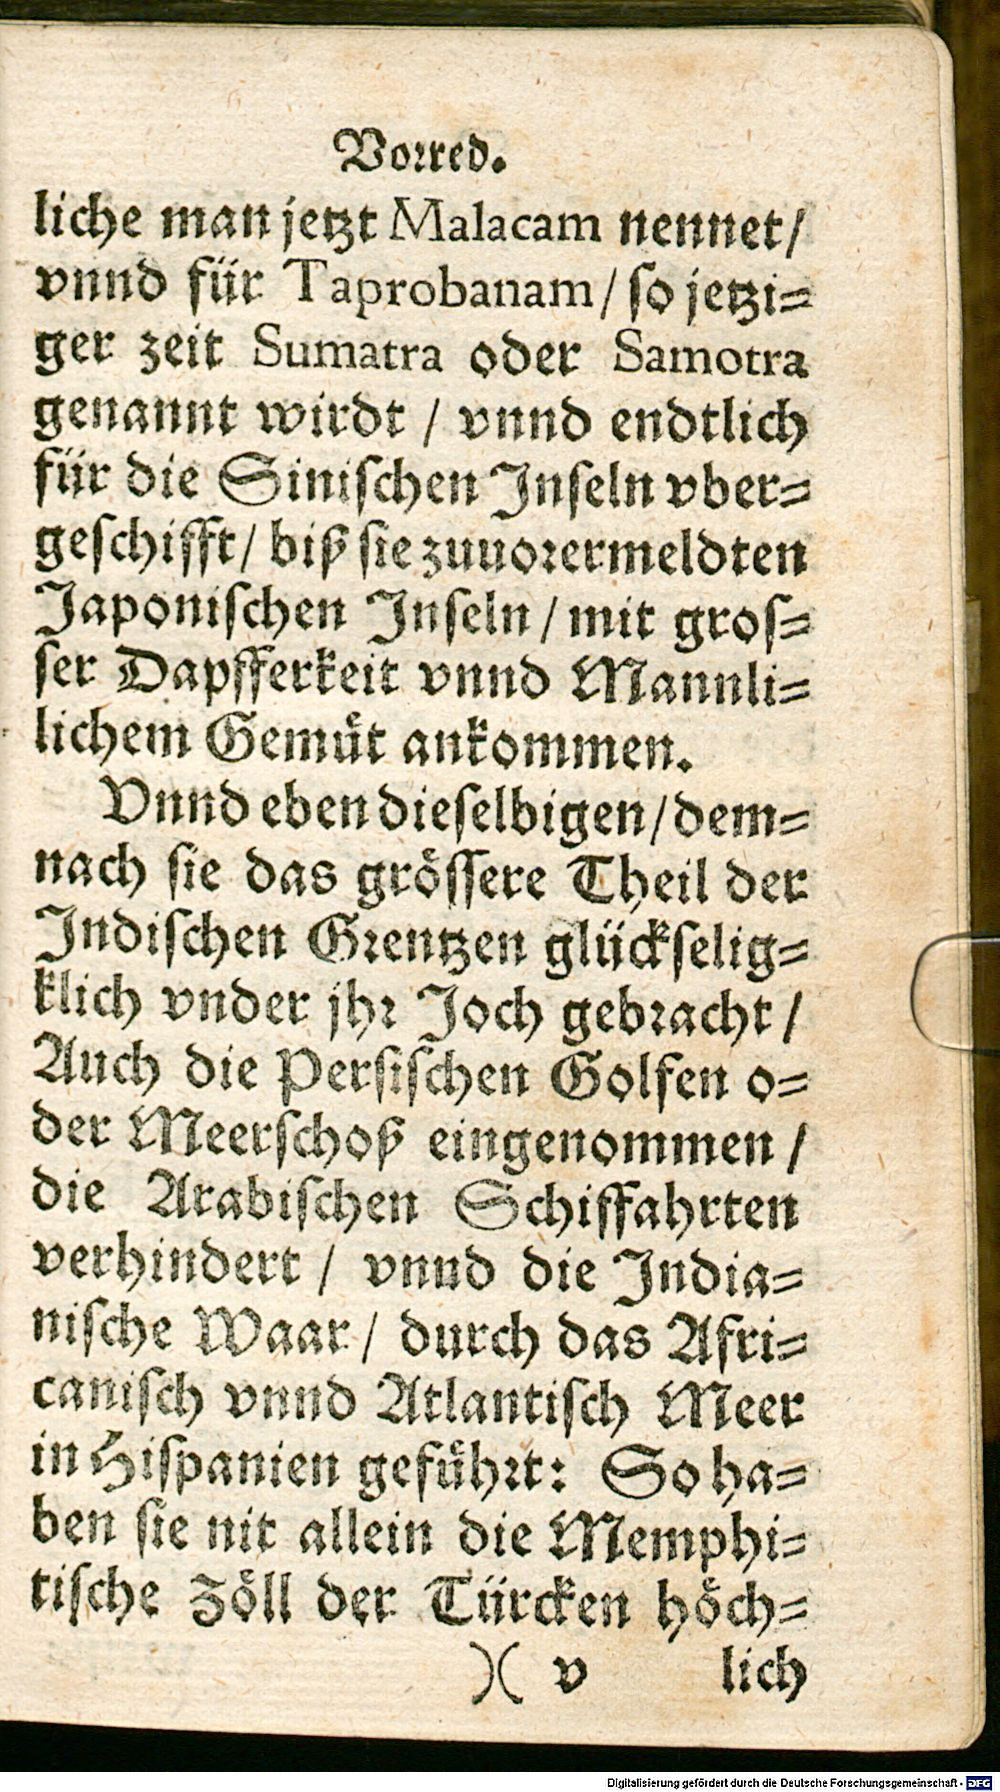 Vorred.
liche man jetzt Malacam nennet/
vnnd für Taprobanam/ so jetzi=
ger zeit Sumatra oder Samotra
genannt wirdt / vnnd endtlich
für die Sinischen Inseln vber=
geschifft/ biß sie zuuorermeldten
Japonischen Inseln/ mit gros=
ser Dapfferkeit vnnd Mannli=
lichem Gemüt ankommen.
Vnnd eben dieselbigen/ dem=
nach sie das grössere Theil der
Indischen Grentzen glückselig=
klich vnder jhr Joch gebracht /
Auch die Persischen Golfen o=
der Meerschoß eingenommen /
die Arabischen Schiffahrten
verhindert / vnnd die India=
nische Waar/ durch das Afri=
canisch vnnd Atlantisch Meer
in Hispanien geführt: So ha=
ben sie nit allein die Memphi=
tische Zöll der Türcken höch=
)( v lich
Digitalisierung gefördert durch die Deutsche Forschungsgemeinschaft - DFG